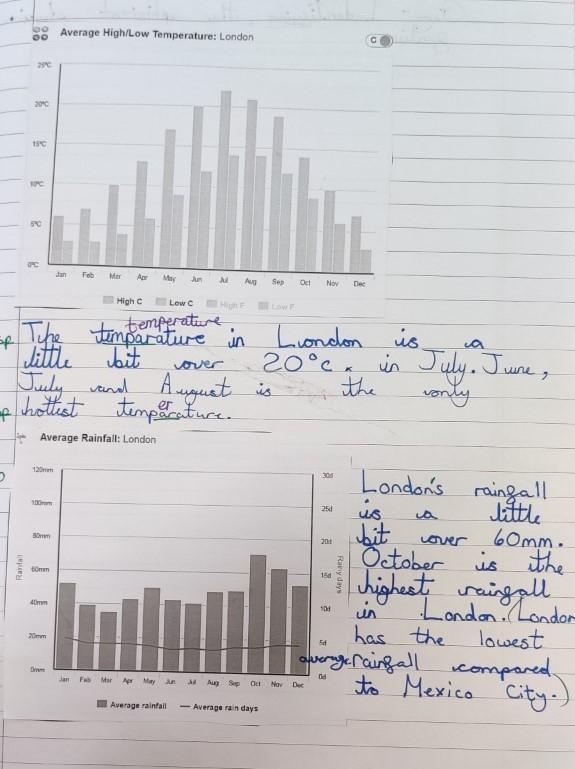 Average High/Low Temperature: London
C
25°C
20°C
15°C
10°C
5°C
0°C
Jan Feb Mar Apr May Jun Jul Aug Sep Oct Nov Dec
High C Low C High F Low F
temperature
The temparature in London is a
little bit over 20°c. in July. June,
July and August is the only
er
hottist temparature.
Average Rainfall: London
120mm
100mm
80mm
60mm
40mm
20mm
0mm
Rainfall
30d
25d
20d
15d
10d
5d
0d
Rainy days
Jan Feb Mar Apr May Jun Jul Aug Sep Oct Nov Dec
Average rainfall Average rain days
London's rainfall
is a little
bit over 60mm.
October is the
highest rainfall
in London. (London
has the lowest
average rainfall compared
to Mexico City.)